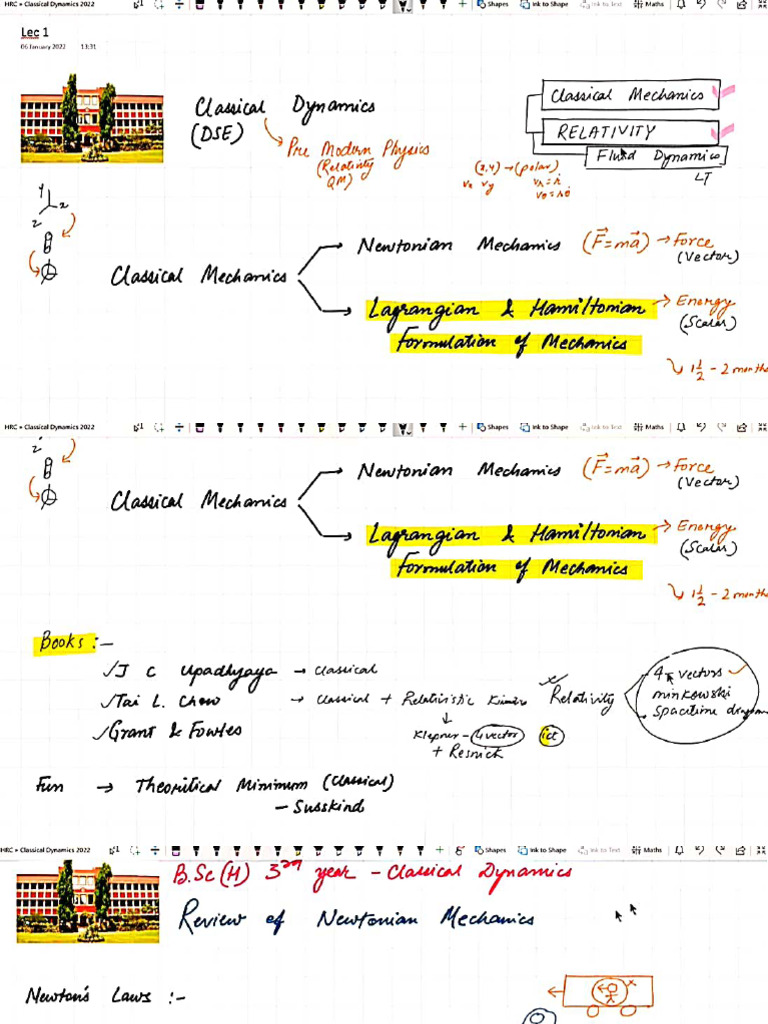 HRC » Classical Dynamics 2022
Shapes Ink to Shape Ink to Text Maths
Lec 1
06 January 2022 13:31
Classical Dynamics
(DSE)
Pre Modern Physics
(Relativity
QM)
Classical Mechanics
RELATIVITY
Fluid Dynamics
LT
(x,y) → (polar)
vx vy vr = ṙ
vθ = rθ̇
y
x
z
Classical Mechanics
Newtonian Mechanics (F⃗=ma⃗) → Force
(Vector)
Lagrangian & Hamiltonian → Energy
Formulation of Mechanics (Scalar)
1½ - 2 months
HRC » Classical Dynamics 2022
Shapes Ink to Shape Ink to Text Maths
z
Classical Mechanics
Newtonian Mechanics (F⃗=ma⃗) → Force
(Vector)
Lagrangian & Hamiltonian → Energy
Formulation of Mechanics (Scalar)
1½ - 2 months
Books :-
✓J C Upadhyaya → Classical
✓Tai L. Chow → Classical + Relativistic Relativity
✓Grant & Fowles
Klepner - 4 vector ict
+ Resnick
4 vectors ✓
minkowski
Spacetime
Fun → Theoritical Minimum (Classical)
- Susskind
HRC » Classical Dynamics 2022
Shapes Ink to Shape Ink to Text Maths
B.Sc (H) 3rd year - Classical Dynamics
Review of Newtonian Mechanics
Newton's Laws :-